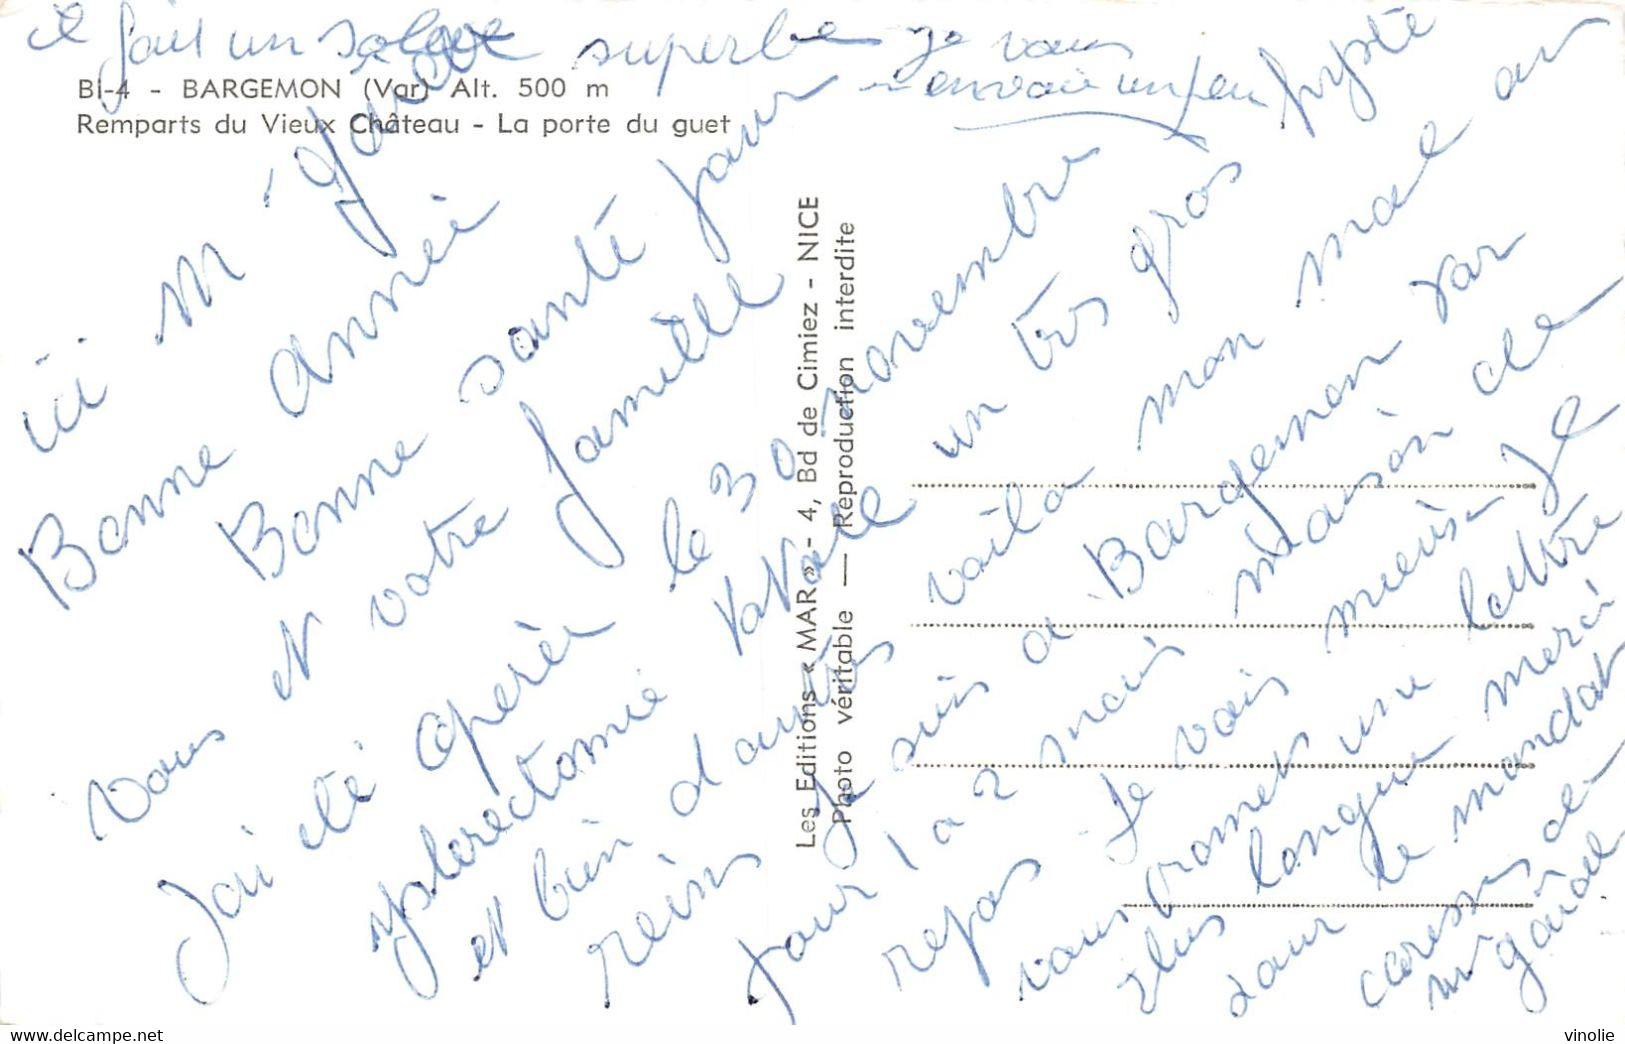 il fait un soleil superbe je vous
envoie un peu
BI-4 - BARGEMON (Var) Alt. 500 m
Remparts du Vieux Château - La porte du guet
ici M
Bonne année
Bonne santé pour
vous et votre famille
J'ai été opérée le 30 novembre
ysterectomie totale un très gros
et bien d'autres voila mon mal au
reins Je suis a Bargemon var
pour 1 a 2 mois maison de
repos Je vais mieux Je
vous promets une lettre
plus longue merci
pour le mandat
caresses de
Les Editions « MAR » - 4, Bd de Cimiez - NICE
Photo véritable — Reproduction interdite
delcampe.net
vinolie